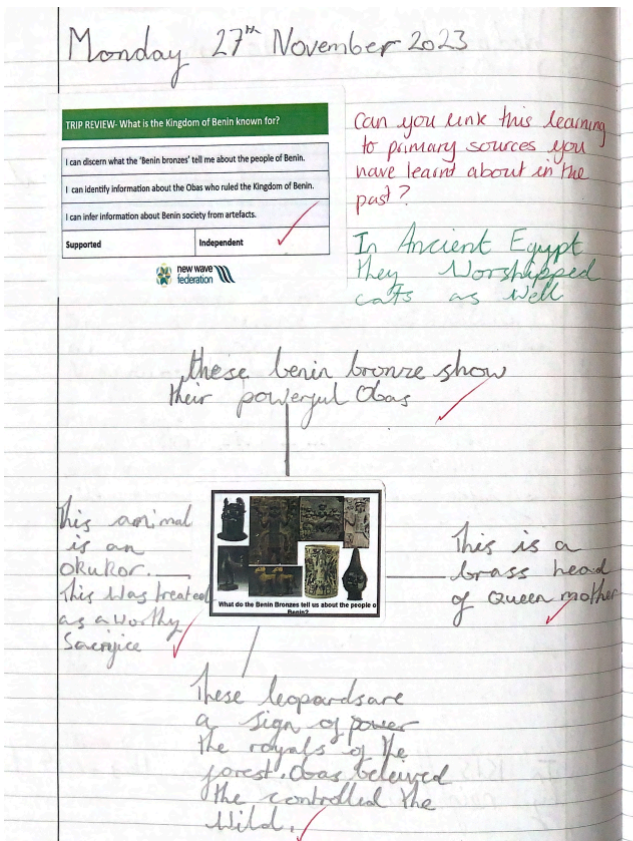 Monday 27th November 2023
TRIP REVIEW- What is the Kingdom of Benin known for?
I can discern what the 'Benin bronzes' tell me about the people of Benin.
I can identify information about the Obas who ruled the Kingdom of Benin.
I can infer information about Benin society from artefacts.
Supported Independent
new wave
federation
Can you link this learning
to primary sources you
have learnt about in the
past?
In Ancient Egypt
they Worshipped
cats as well
these benin bronze show
their powerful Obas
This animal
is an
Okukor.
This was treated
as a worthy
Sacrifice
What do the Benin Bronzes tell us about the people o
Benin?
This is a
brass head
of Queen mother
These leopards are
a sign of power
the royals of the
forest. Obas beleived
the controlled the
wild.